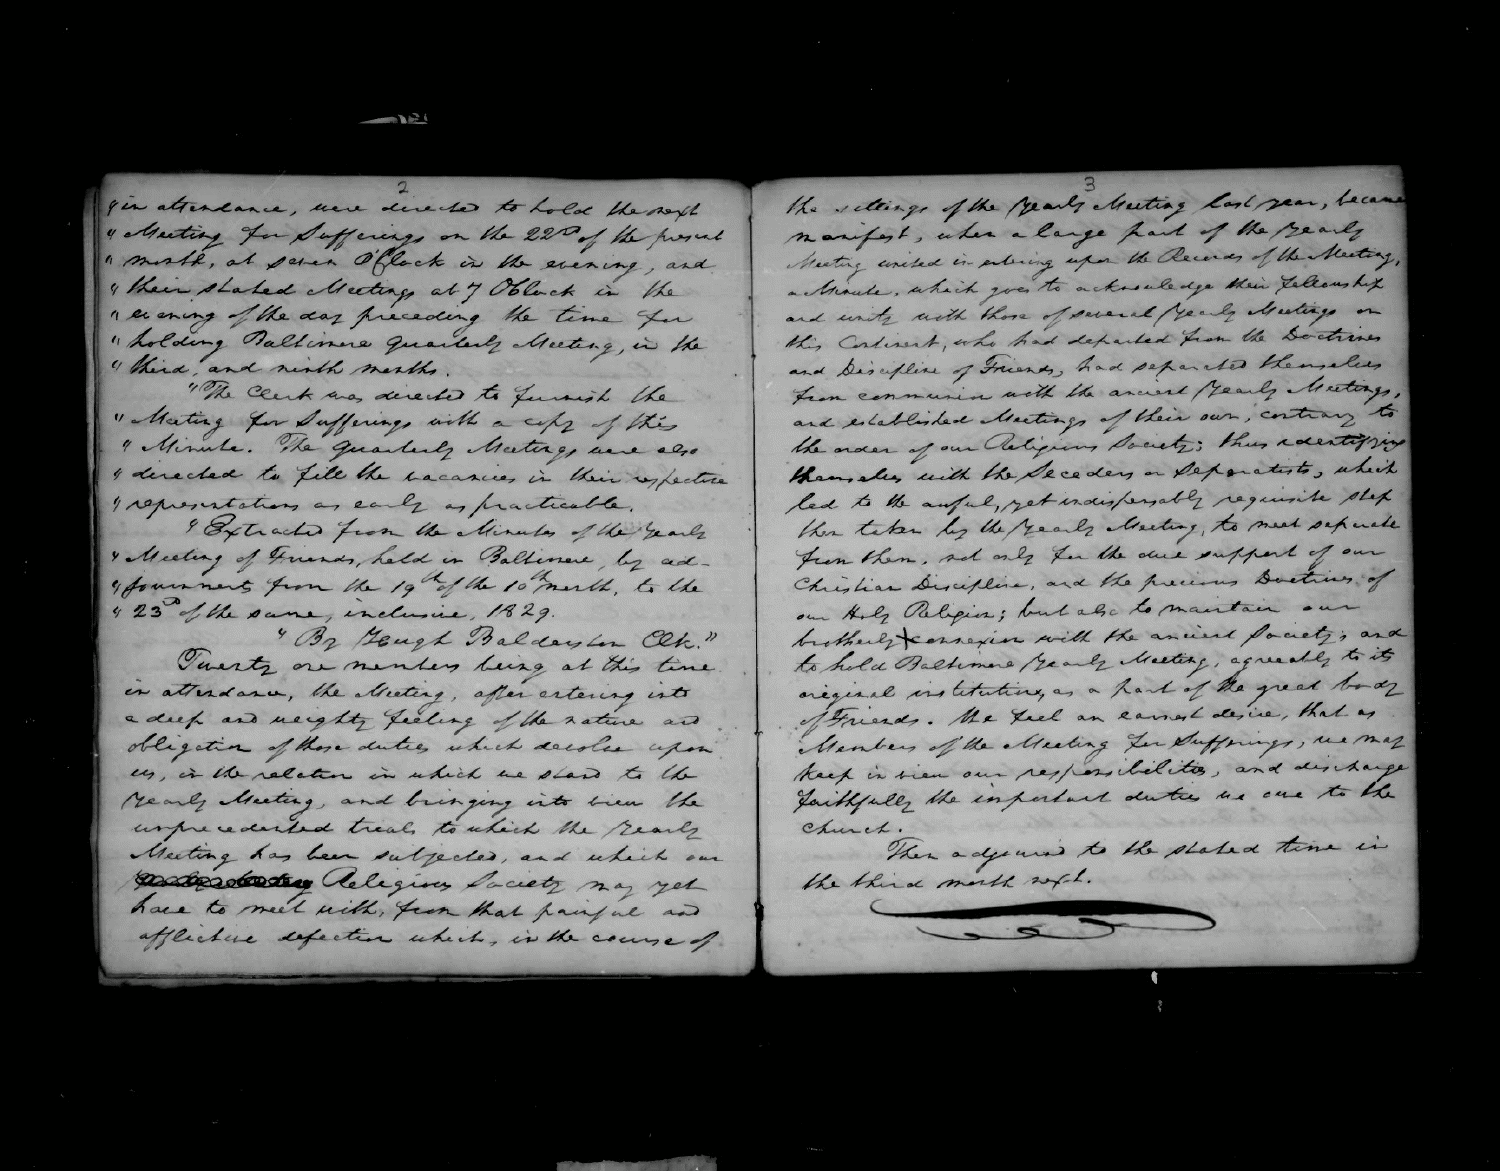 2
"in attendance, were directed to hold the next
" Meeting for Sufferings on the 22nd of the present
" month, at seven O'Clock in the evening, and
" their stated Meetings at 7 O'Clock in the
" evening of the day preceding the time for
" holding Baltimore Quarterly Meeting, in the
" third, and ninth months.
"The Clerk was directed to furnish the
" Meeting for Sufferings with a copy of this
" Minute. The Quarterly Meetings were also
" directed to fill the vacancies in their respective
" representations as early as practicable.
" Extracted from the Minutes of the Yearly
" Meeting of Friends, held in Baltimore, by ad-
" journments from the 19th of the 10th month, to the
" 23rd of the same, inclusive, 1829.
" By Hugh Balderston Clk."
Twenty one members being at this time
in attendance, the Meeting, after entering into
a deep and weighty feeling of the nature and
obligation of those duties which devolve upon
us, in the relation in which we stand to the
Yearly Meeting, and bringing into view the
unprecedented trials to which the Yearly
Meeting has been subjected, and which our
Religious Society may yet
have to meet with, from that painful and
afflictive defection which, in the course of
3
the sittings of the Yearly Meeting last year, became
manifest, when a large part of the Yearly
Meeting united in entering upon the Records of the Meeting,
a Minute, which goes to acknowledge their fellowship
and unity with those of several Yearly Meetings on
this Continent, who had departed from the Doctrines
and Discipline of Friends, had separated themselves
from communion with the ancient Yearly Meetings,
and established Meetings of their own, contrary to
the order of our Religious Society; thus identifying
themselves with the Seceders or Separatists, which
led to the awful, yet indispensably requisite step
then taken by the Yearly Meeting, to meet separate
from them, not only for the due support of our
Christian Discipline, and the precious Doctrines of
our Holy Religion; but also to maintain our
brotherly connexion with the ancient Society; and
to hold Baltimore Yearly Meeting, agreeably to its
original institution, as a part of the great body
of Friends. We feel an earnest desire, that as
Members of the Meeting for Sufferings, we may
keep in view our responsibilities, and discharge
faithfully the important duties we owe to the
church.
Then adjourned to the stated time in
the third month next.